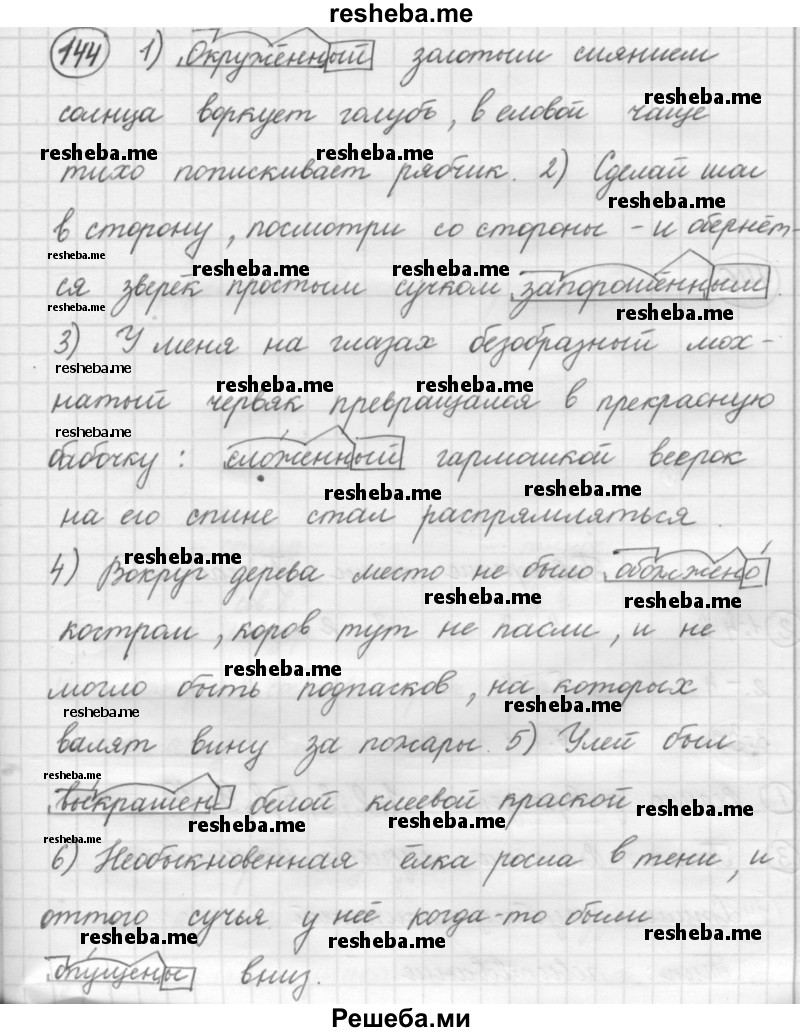 resheba.me
144 1) Окружённый золотым сиянием
солнца воркует голубь, в еловой чаще
resheba.me
resheba.me resheba.me
тихо попискивает рябчик. 2) Сделай шаг
resheba.me
в сторону, посмотри со стороны - и обернёт-
resheba.me resheba.me
ся зверёк простым сучком запорошённым.
resheba.me
3) У меня на глазах безобразный мох-
resheba.me
resheba.me resheba.me
натый червяк превращался в прекрасную
resheba.me
бабочку: сложенный гармошкой веерок
resheba.me resheba.me
на его спине стал распрямляться.
resheba.me
4) Вокруг дерева место не было обожжено
resheba.me resheba.me
костром, коров тут не пасли, и не
resheba.me
могло быть подпасков, на которых
resheba.me resheba.me
валят вину за пожары. 5) Улей был
resheba.me
выкрашен белой клеевой краской
resheba.me resheba.me
6) Необыкновенная ёлка росла в тени, и
resheba.me
оттого сучья у неё когда-то были
resheba.me resheba.me resheba.me
опущены вниз.
Решеба.ми